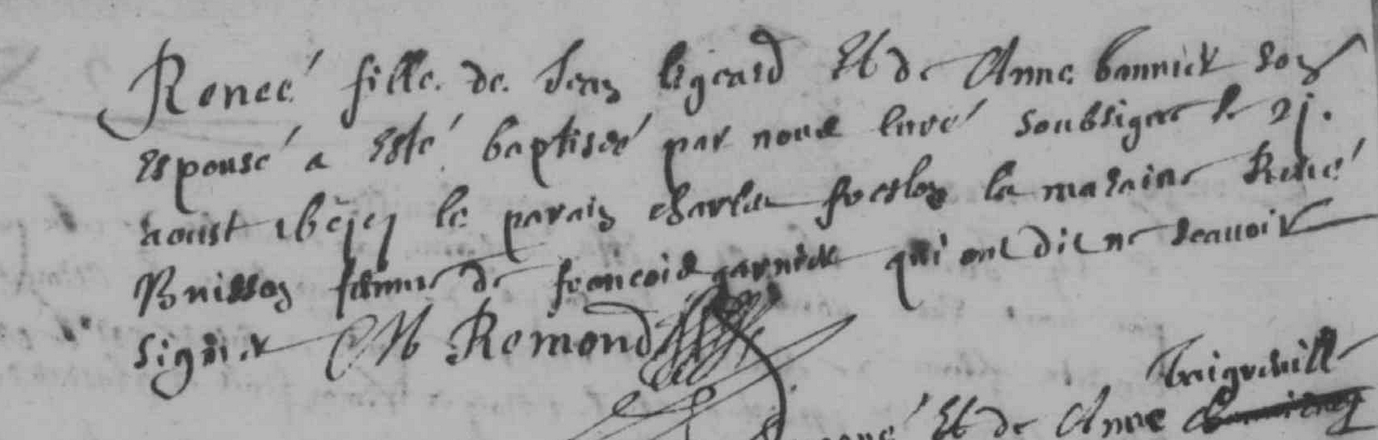 Reneé fille de Jean ligeard Et de Anne bonnick son
Espousé a Esté baptiseé par nous Curé soubsigne le 21.
aoust le parain charles la maraine Reneé
Buisson femme de francois garnick qui ont dit ne scauoir
signer M Remond
baigneuill
Et de Anne